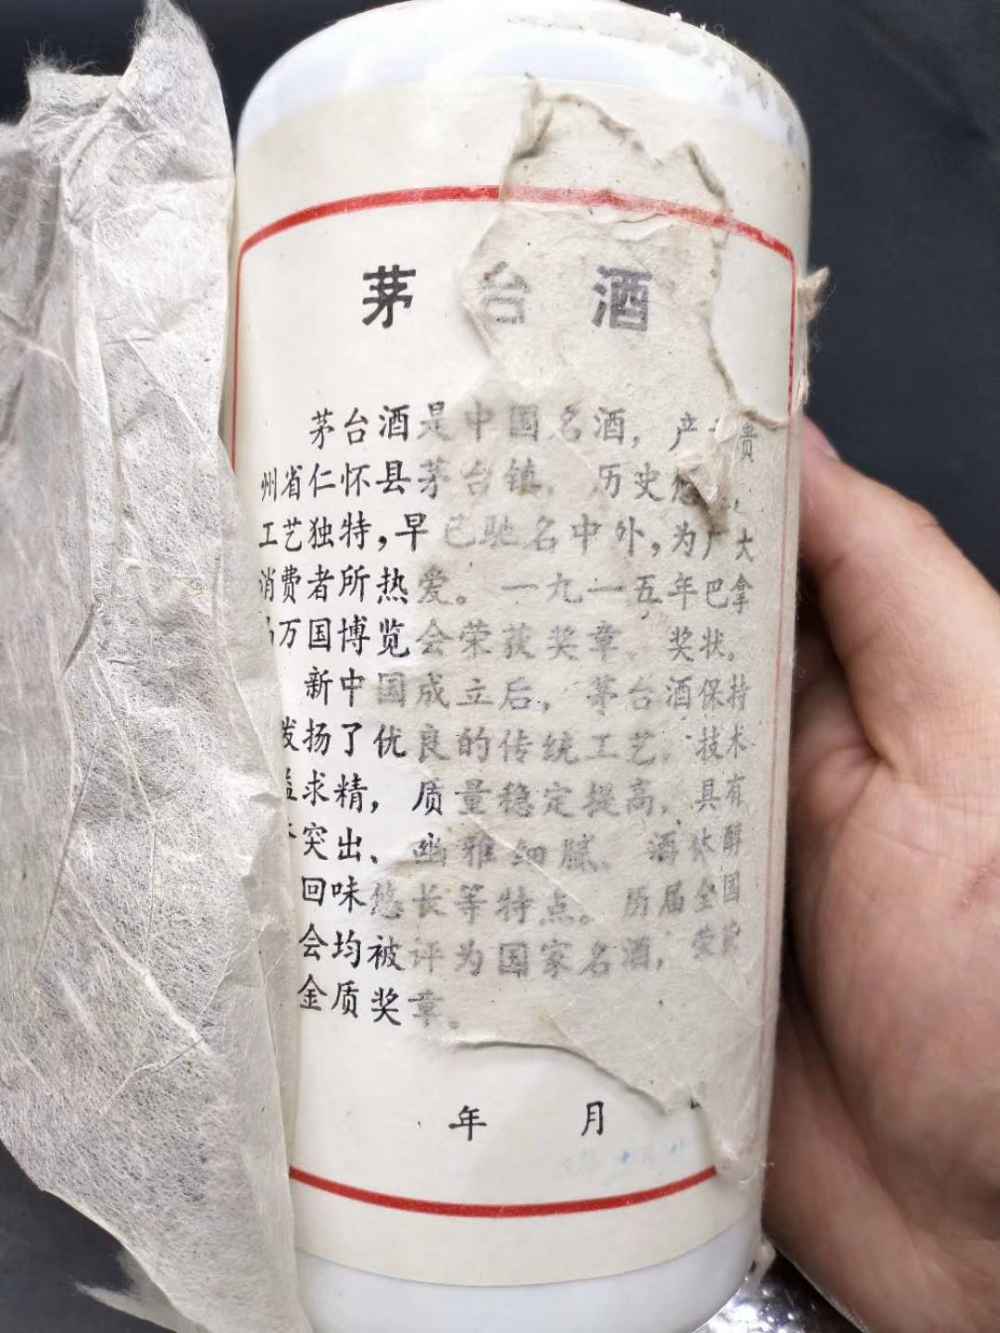 茅台酒
茅台酒是中国名酒，产 贵
州省仁怀县茅台镇，历史悠
工艺独特，早已驰名中外，为广大
消费者所热爱。一九一五年巴拿
马万国博览会荣获奖章、奖状。
新中国成立后，茅台酒保持
发扬了优良的传统工艺，技术
益求精，质量稳定提高，具有
突出、幽雅细腻、酒体醇
回味悠长等特点。历届全国
会均被评为国家名酒，荣
金质奖章。
年 月